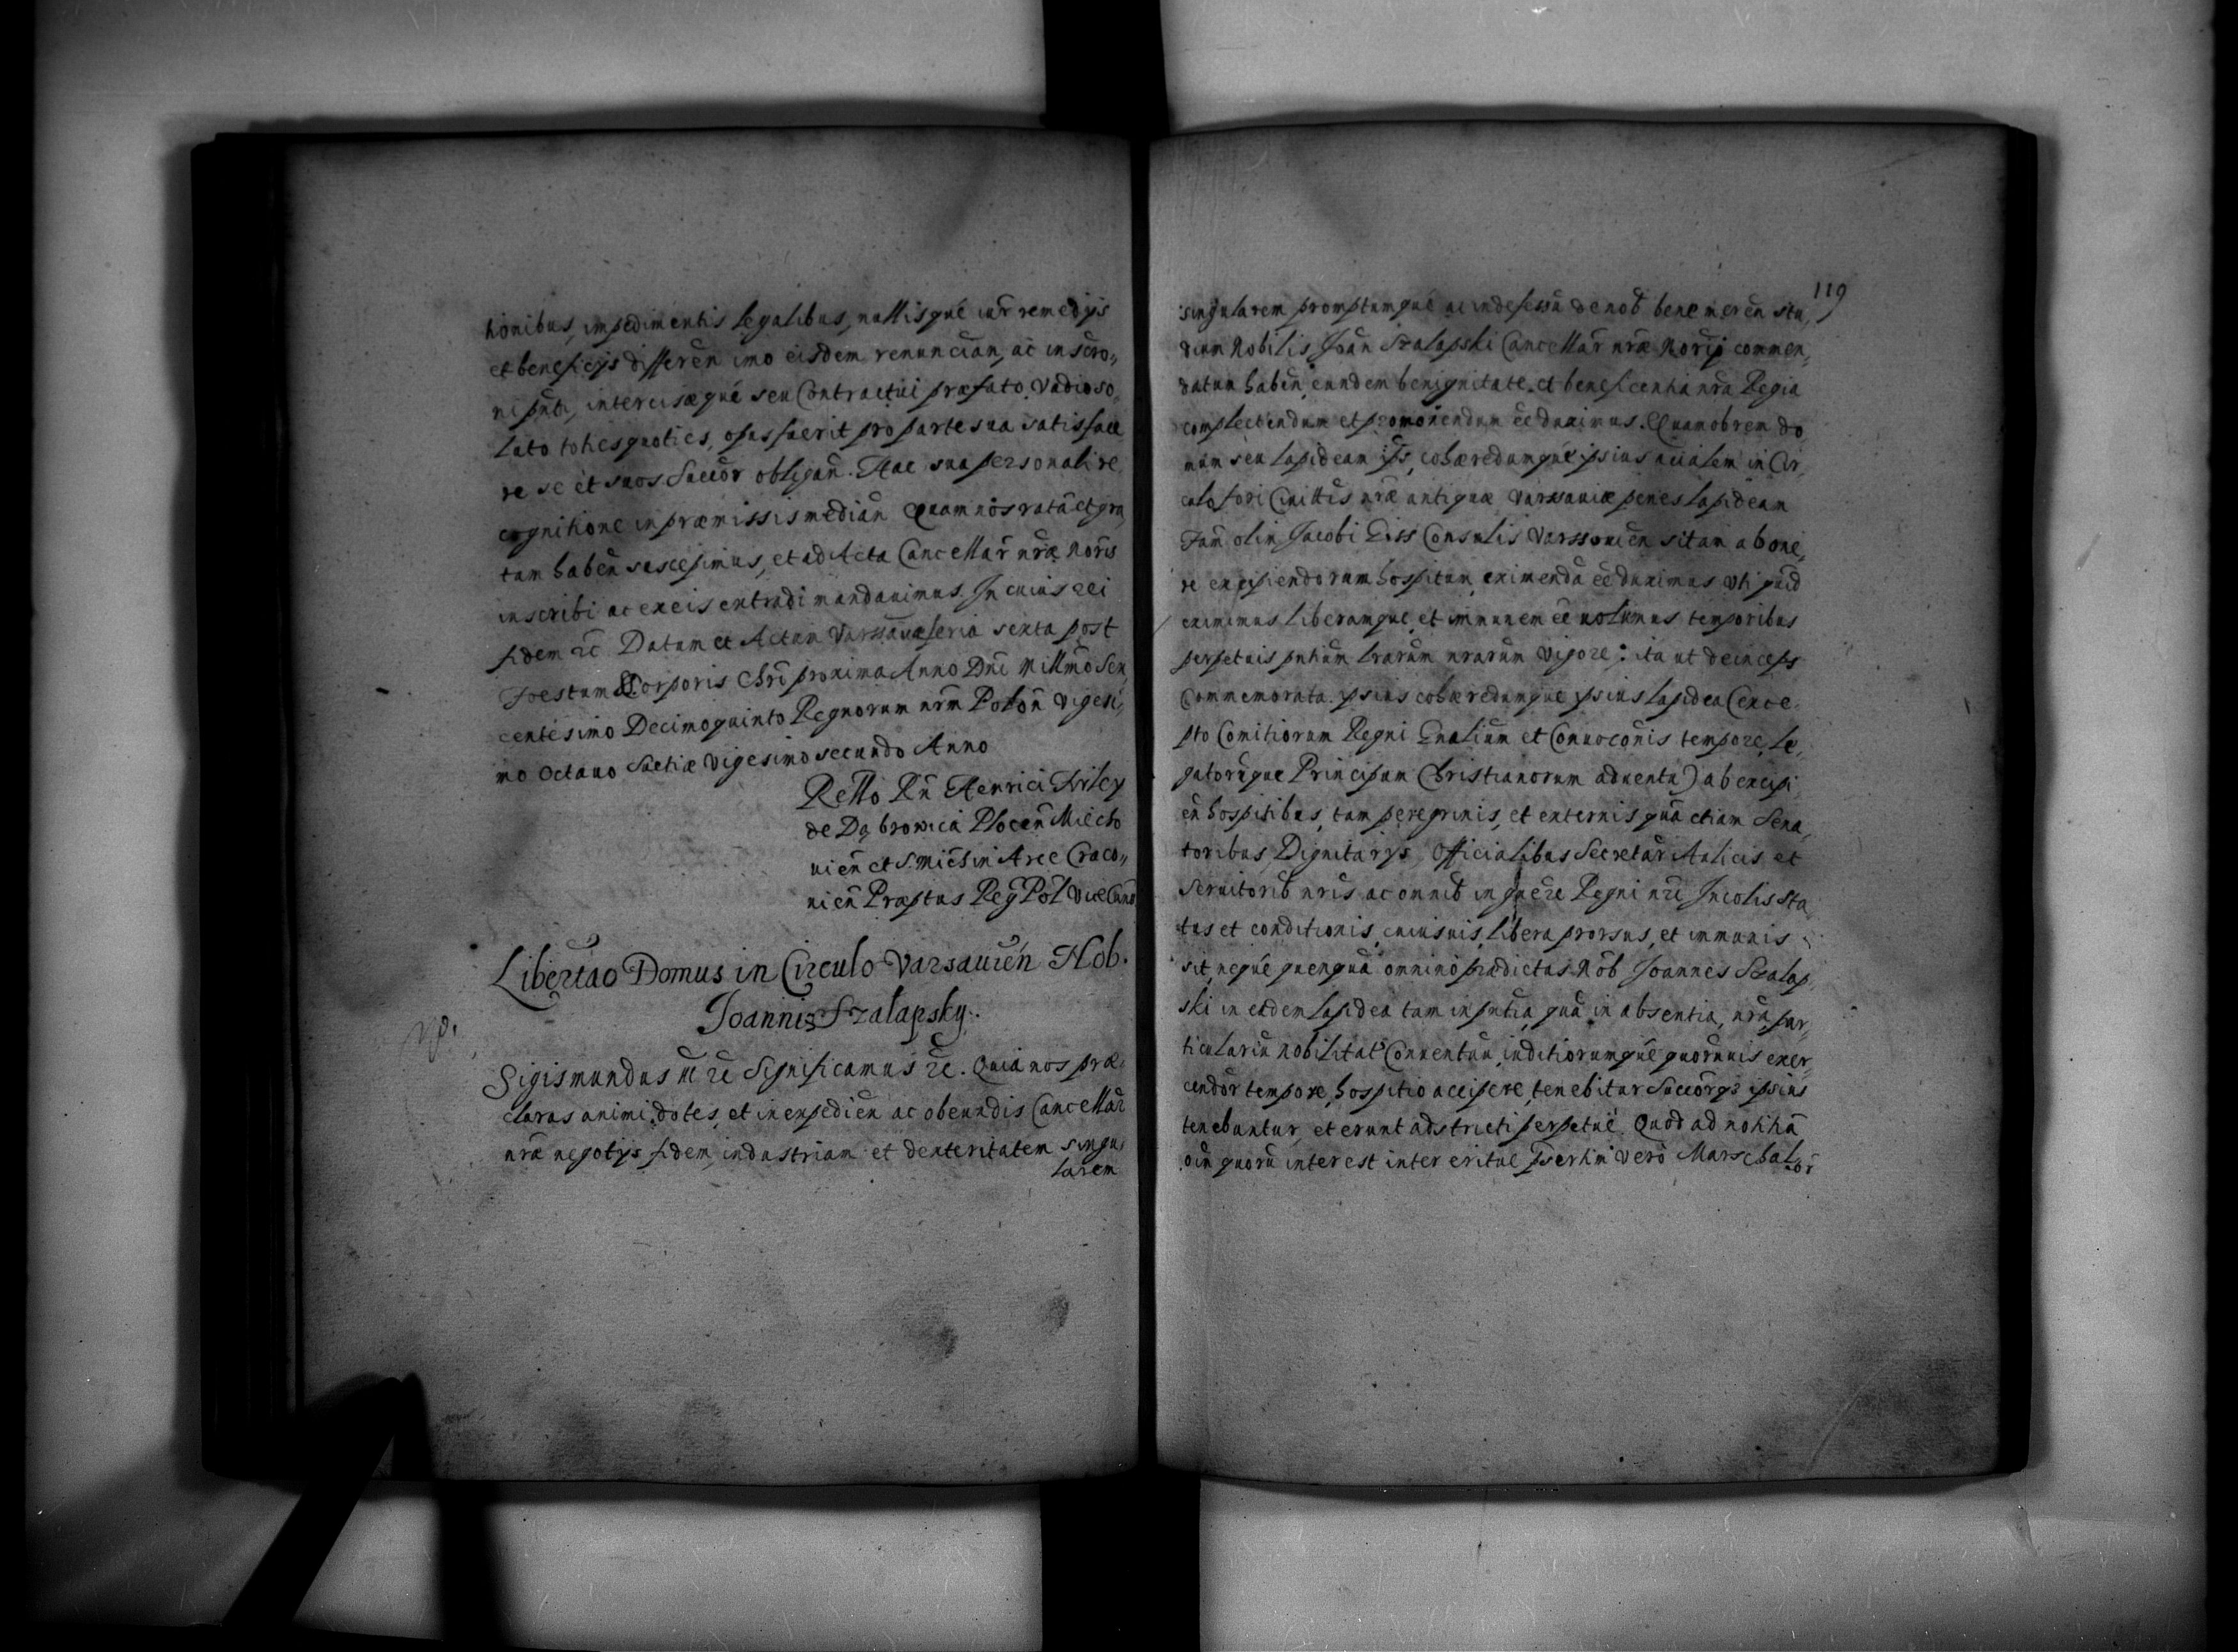 tionibus, impedimentis legalibus, nullisqué iur̄ remedijs
et beneficijs differen̄ imo eisdem renuncian̄, ac in scro„
ni pn̄ti, intercisæqué seu Contractui præfato, vadio so„
luto toties quoties, opus fuerit pro parte sua satisface
re se et suos Succōr obligan̄. Hac sua personali re
cognitione in præmissis median̄ Quam nos ratā et gra
tam haben̄ suscepimus, et ad Acta Cancellar̄ nr̄æ Nor̄is
inscribi ac ex eis extradi mandauimus. In cuius rei
fidem r̄c̄ Datum et Actum Varsauiæ feria sexta post
Foestum Corporis Chri proxima Anno Dn̄i Millm̄o Sex,
centesimo Decimoquinto Regnorum nr̄m Polon̄ Vigesi,
mo Octauo Suetiæ Vigesimo secundo Anno
Rello Rn̄ Henrici Firley
de Dąbrowica Plocen̄ Miecho
uien̄ et S. Mich̄ in Arce Craco„
uien̄ Præptus Reḡ Pol̄ ViceCanc̄
Libertao Domus in Circulo Varsauien̄ Nob.
Joannis Szalapsky.
Sigismundus III rc̄ Significamus rc̄. Quia nos præ
claras animi dotes, et in expedien̄ ac obeundis Cancellar̄
nr̄æ negotijs fidem, industriam et dexteritatem singu
larem
119
singularem promptumqué ac indefessū de nob̄ bene meren̄ stu,
dium Nobilis Joan̄ Szalapski Cancellar̄ nr̄æ Norij commen,
datum haben̄, eundem benignitate et beneficentia nr̄a Regia
complectendum et promouendum eē duximus. Quamobrem do
mum seu lapideam ip̄s, cohæredumqué ipsius acialem in Cir,
culo fori Ciuittis nr̄æ antiquæ Varssauiæ penes lapideam
Fam̄ olim Jacobi Giss Consulis Varssouien̄ sitam ab one,
re excipiendorum hospitum, eximendā eē duximus Vti quid̄
eximimus liberamque, et immunem eē uolumus temporibus
perpetuis pn̄tium lrarum nrarum Vigore: ita ut deinceps
Commemorata ipsius cohæredumque ipsius lapidea (exce.
pto Comitiorum Regni Gnalium et Conuocōnis tempore, le,
gatorūque Principum Christianorum aduentu) ab excipi
en̄ hospitibus, tam peregrinis, et externis quā etiam Sena,
toribus, Dignitarijs, Officialibus Secretar̄ Aulicis et
Seruitorib̄ nr̄is ac omnib̄ in gn̄ere Regni nr̄i Incolis sta
tus et conditionis, cuiusuis, libera prorsus, et immunis
sit, nequé quenquā omnino prædictus Nob̄ Joannes Szalap
ski in eadem lapidea tam in pn̄tia, quā in absentia, nr̄a, par„
ticulariū nobilitat̄ Conuentuū, iuditiorumqué quorūuis exer
cendor̄ tempore, hospitio accipere, tenebitur Succōrq3 ipsius
tenebuntur, et erunt adstricti perpetué. Quod ad notitiā
oiū quorū interest inter eritue p̄sertim̄ vero Marschal
cor̄